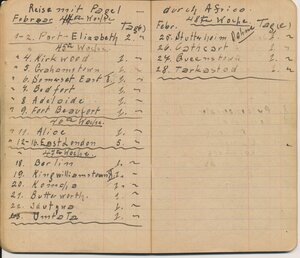 Reise mit Pagel
Februar 44te Woche Tag(e)
1-2. Port-Elizabeth 2. "
45te Woche
" 4. Kirkwood 1. "
" 5. Grahamstown 1. "
" 6. Somerset East 1. "
" 7. Bedford 1. "
" 8. Adelaide 1. "
" 9. Fort Beaufort 1. "
46te Woche
" 11. Alice 1. "
" 12-16. East London 5. "
47te Woche
18. Berlin 1. "
19. Kingwilliamstown 1. "
20. Komgha 1. "
21. Butterworth 1. "
22. 1. "
23. Umtata 1. "
durch Africa.
Febr. 48te Woche Tag(e)
25. Stutterheim 1. "
26. Cathcart 1. "
27. Queenstown 1. "
28. Tarkastad 1. "